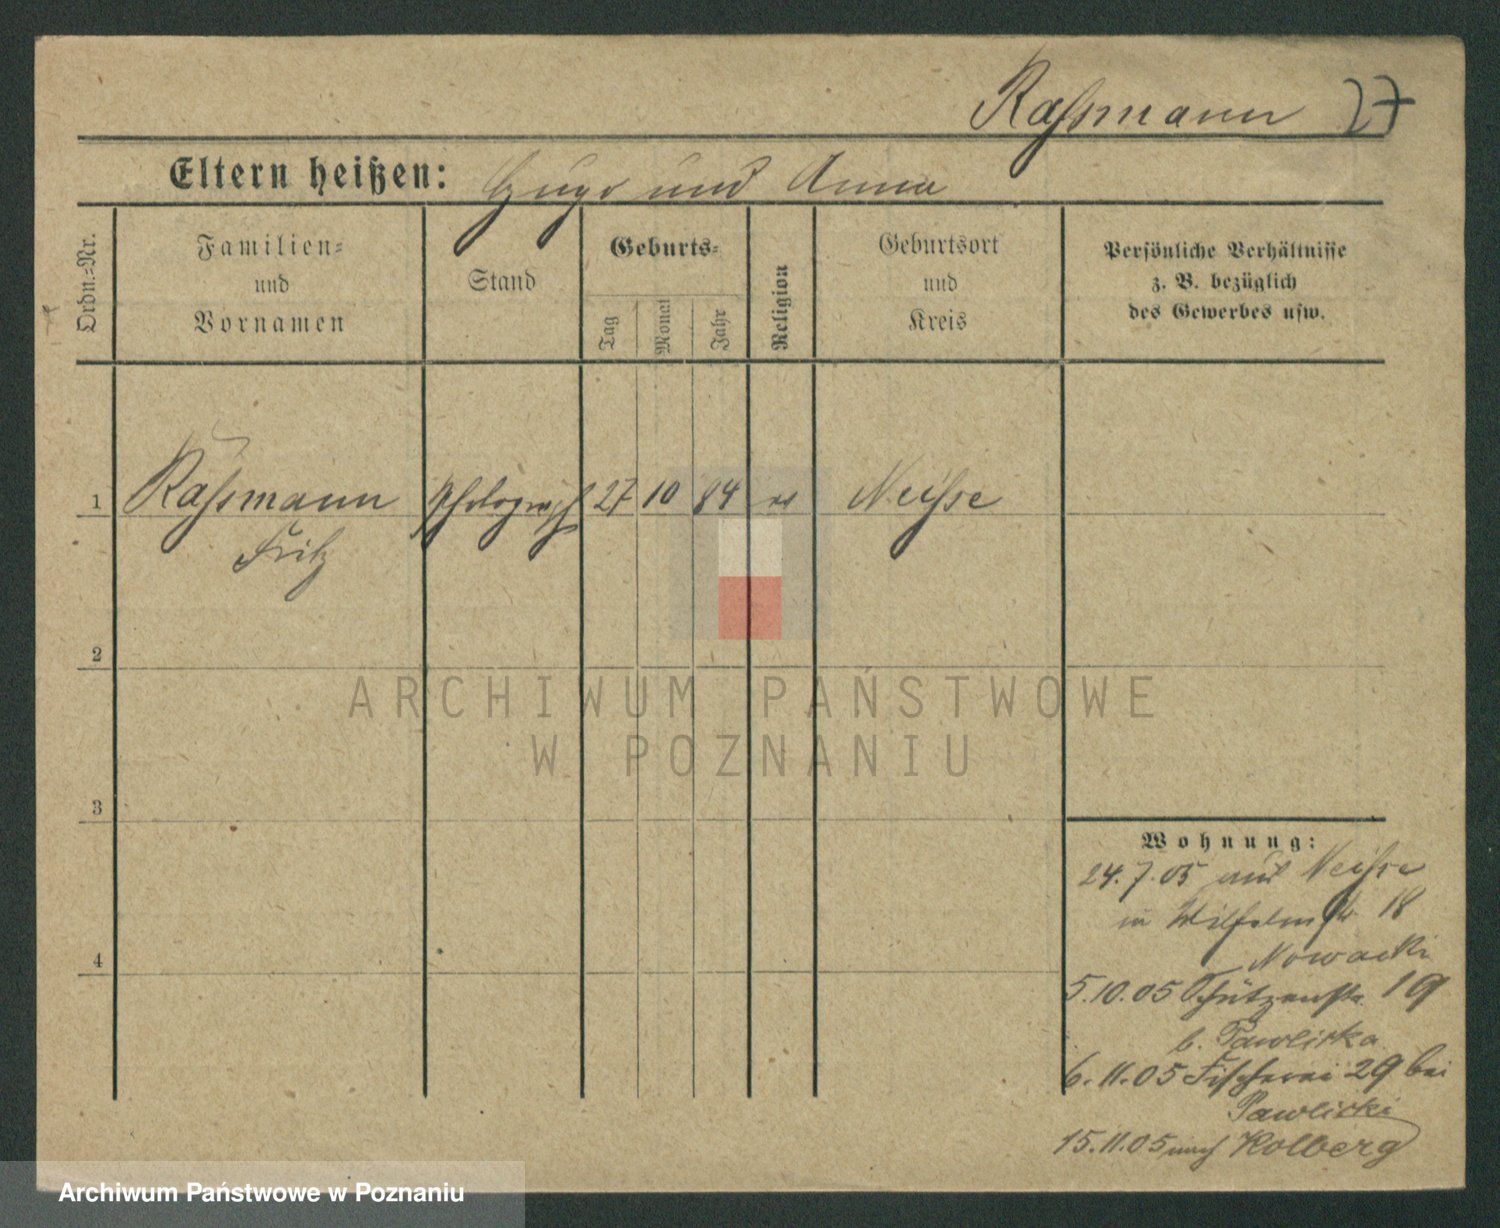 Raßmann 27
Eltern heißen: Hugo und Anna
Ordn.-Nr.
Familien-
und
Vornamen
Stand
Geburts-
Tag
Monat
Jahr
Religion
Geburtsort
und
Kreis
Persönliche Verhältnisse
z. B. bezüglich
des Gewerbes usw.
1 Raßmann Photograph 27 10 84 Neisse
Fritz
2
3
4
Wohnung:
24.7.05 aus Neisse
in Wilhelmstr 18
Nowacki
5.10.05 Schützenstr. 19
b. Pawlicka
6.11.05 Fischerei 29 bei
Pawlicki
15.11.05 nach Kolberg
ARCHIWUM PAŃSTWOWE
W POZNANIU
Archiwum Państwowe w Poznaniu